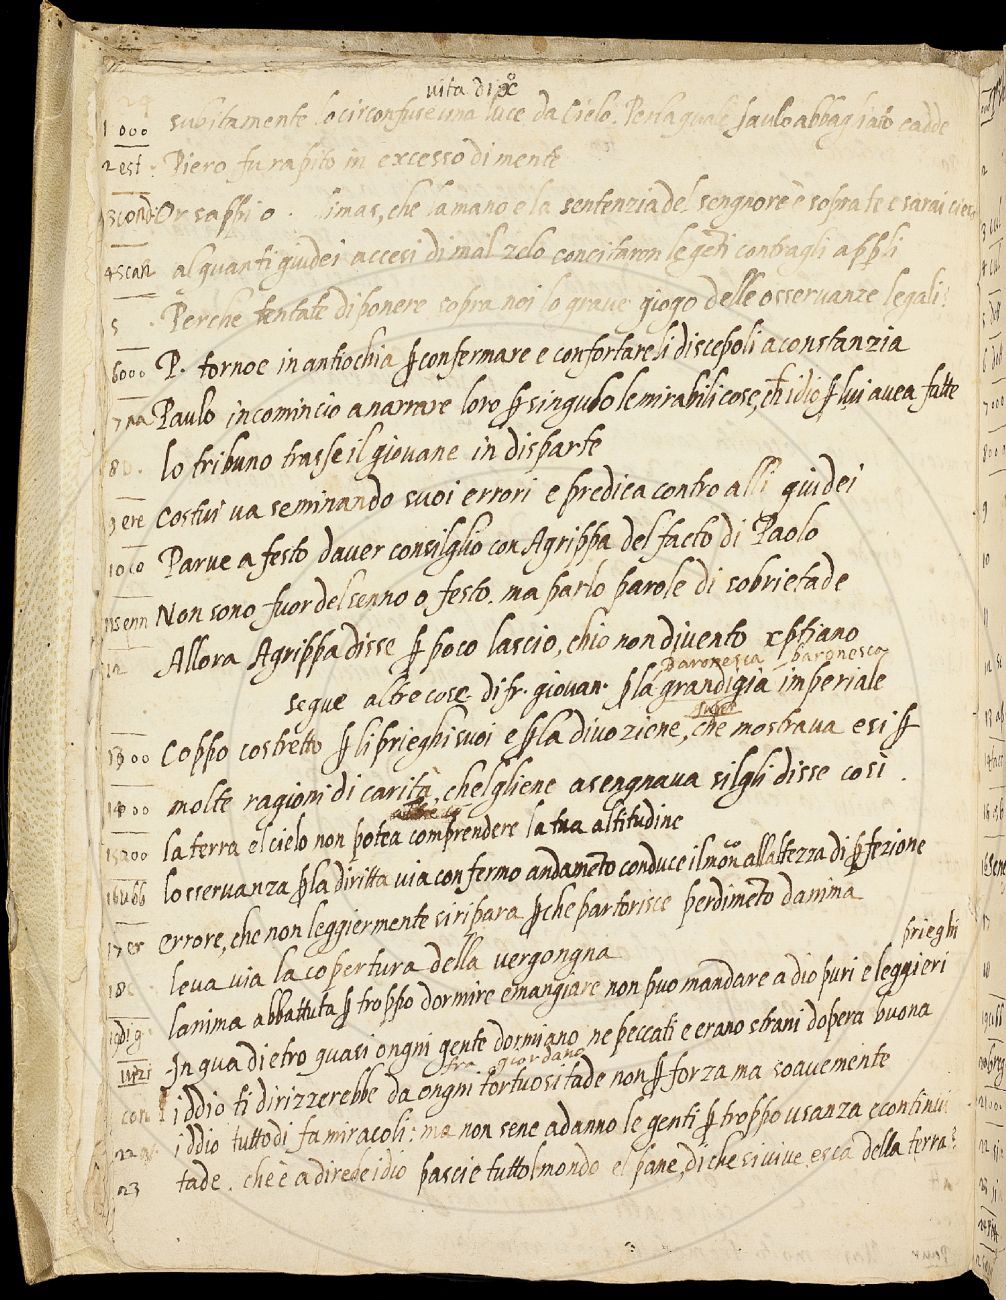 vita di xº
1 000 subitamente lo circonfuse una luce da Cielo. Per la quale saulo abbagliato cadde
2 est Piero fu rapito in excesso di mente
3 cond Or sappi o limas, che la mano e la sentenzia del sengnore è sopra te e sarai
4 scan alquanti guidei accesi di mal zelo concitaron le gēti contra gli appli
5 Perche tentate di ponere sopra noi lo grave giogo delle osservanze legali?
6 000 P. tornoe in antiochia ꝑ confermare e confortare li discepoli a constanzia
7 na Paulo incomincio a narrare loro ꝑ singulo le mirabili cose, ch̄ idio ꝑ lui avea fatte
8 lo tribuno trasse il giovane in disparte
9 ere costui va seminando suoi errori e predica contro alli guidei
10 co Parve a festo d aver consilglio con Agrippa del facto di Paolo
11 senn Non sono fuor del senno o festo. ma parlo parole di sobrietade
12 Allora Agrippa disse ꝑ poco lascio, chio non divento xp̄tiano
Baronesca baronesca
segue altre cose di fr. giovan. ꝑ la grandigia imperiale
13 00 Coppo costretto ꝑ li prieghi suoi e ꝑ la divozione, che mostrava e si ꝑ
14 00 molte ragioni di carità, chelgliene asengnava silgli disse così.
15 200 la terra el cielo non potea comprendere la tua altitudine
16 ubb losservanza ꝑ la diritta via con fermo andamēto conduce il mōn alla ltezza di ꝑfezione
17 er errore, che non leggiermente si ripara ꝑ che partorisce perdimēto danima
18 leva via la copertura della vergongna
prieghi
lanima abbattuta ꝑ troppo dormire e mangiare non puo mandare a dio puri e leggieri
In qua dietro quasi ongni gente dormiano ne peccati e erano strani dopera buona
fra giordano
con iddio ti dirizzerebbe da ongni tortuositade non ꝑ forza ma soavemente
22 iddio tutto di fa miracoli: ma non sene adanno le genti ꝑ troppo usanza e continui
23 tade. che è a dire de idio pascie tutto l mondo el pane, di che si vive, esca della terra?